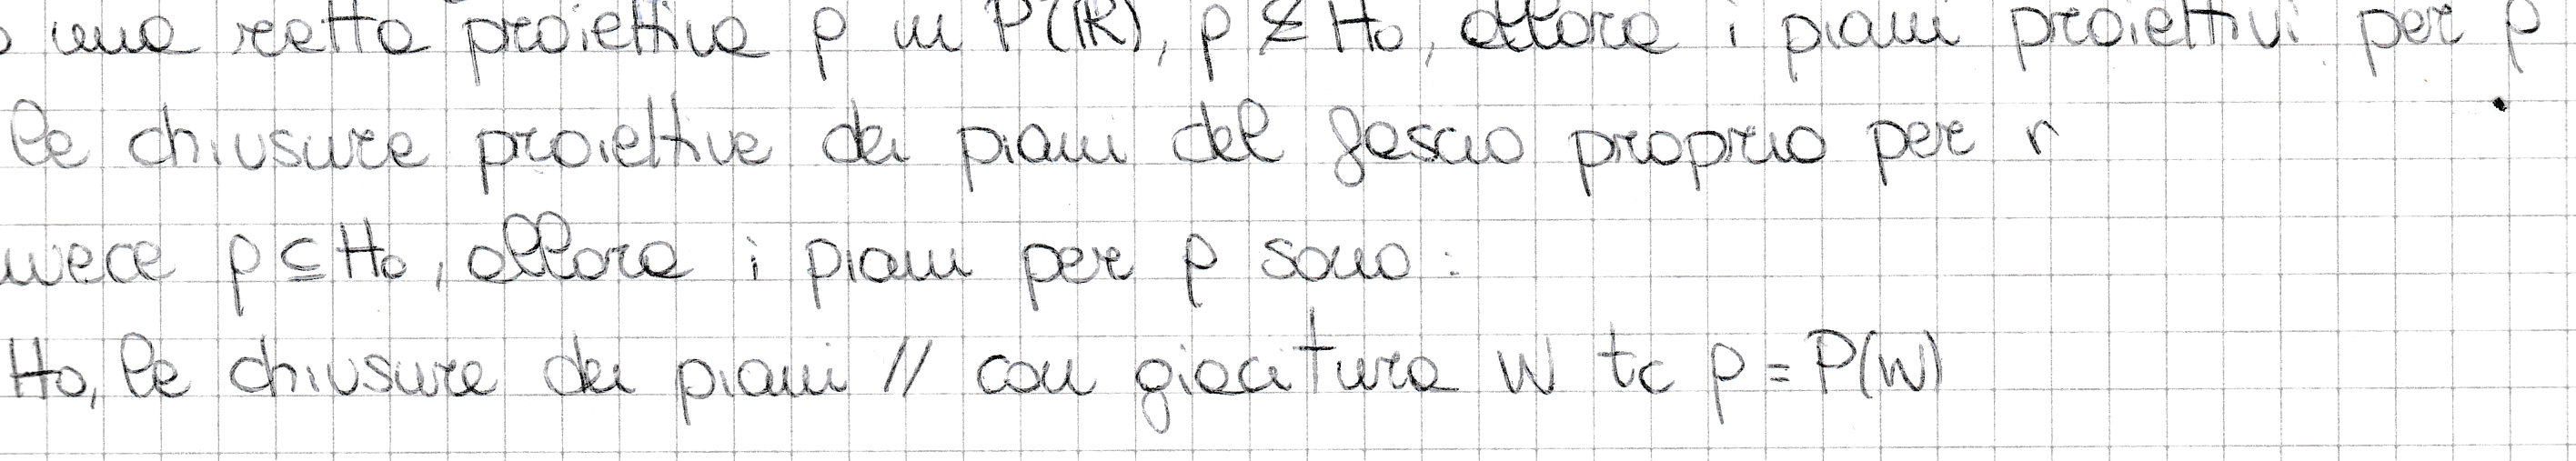 una retta proiettiva ρ in P(ℝ), ρ ⊈ H₀, allora i piani proiettivi per ρ
le chiusure proiettive dei piani del fascio proprio per r
ρ ⊆ H₀, allora i piani per ρ sono:
H₀, le chiusure dei piani // con giacitura W tc ρ = P(W)